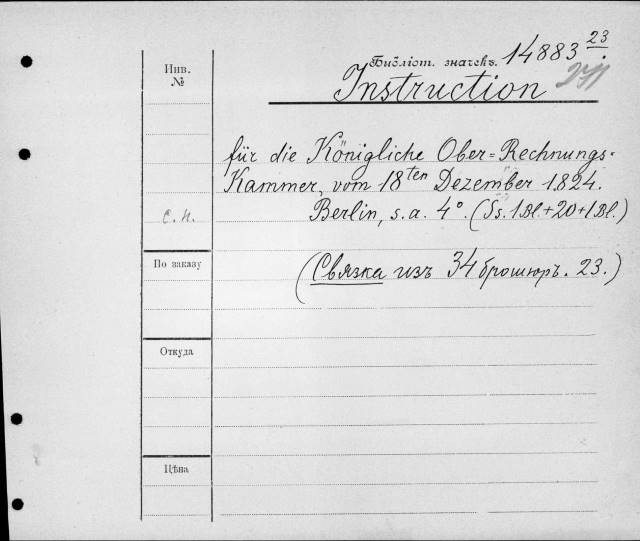 Инв. №
Библіот. значекъ. 14883 23.
Instruction
für die Königliche Ober=Rechnungs-
Kammer, vom 18ten Dezember 1824.
Berlin, s. a. 4°. (Ss. 1 Bl.+20+1 Bl.)
С. П.
По заказу
(Связка изъ 34 брошюръ. 23.)
Откуда
Цѣна